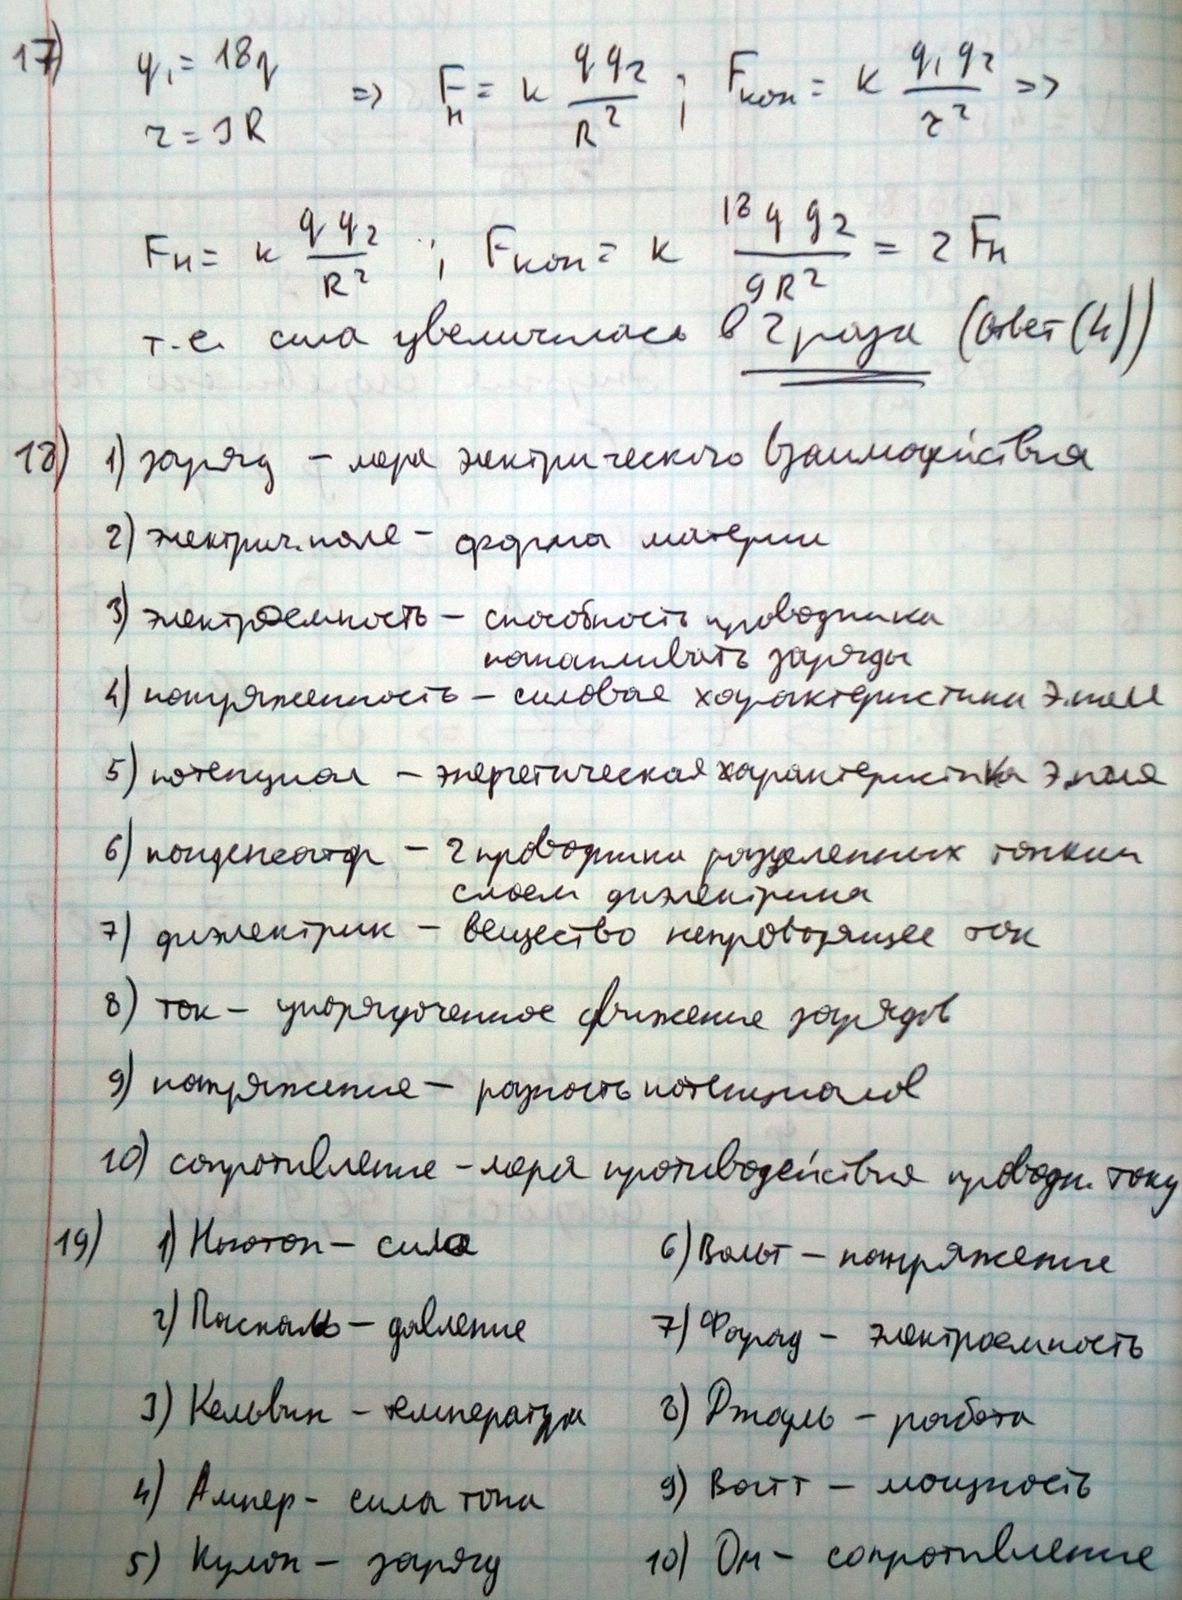 17) q₁ = 18q
r = 3R
=> Fн = k q q₂ / R² ; Fкон = k q₁ q₂ / r² =>
Fн = k q q₂ / R² ; Fкон = k 18 q q₂ / 9R² = 2 Fн
т.е. сила увеличилась в 2 раза (ответ (4))
18) 1) заряд – мера электрического взаимодействия
2) электрич. поле – форма материи
3) электроемкость – способность проводника
накапливать заряды
4) напряженность – силовая характеристика э.поля
5) потенциал – энергетическая характеристика э.поля
6) конденсатор – 2 проводника разделенных тонким
слоем диэлектрика
7) диэлектрик – вещество непроводящее ток
8) ток – упорядоченное движение зарядов
9) напряжение – разность потенциалов
10) сопротивление – мера противодействия проводн. току
19) 1) Ньютон – сила
2) Паскаль – давление
3) Кельвин – температура
4) Ампер – сила тока
5) Кулон – заряд
6) Вольт – напряжение
7) Фарад – электроемкость
8) Джоуль – работа
9) Ватт – мощность
10) Ом – сопротивление